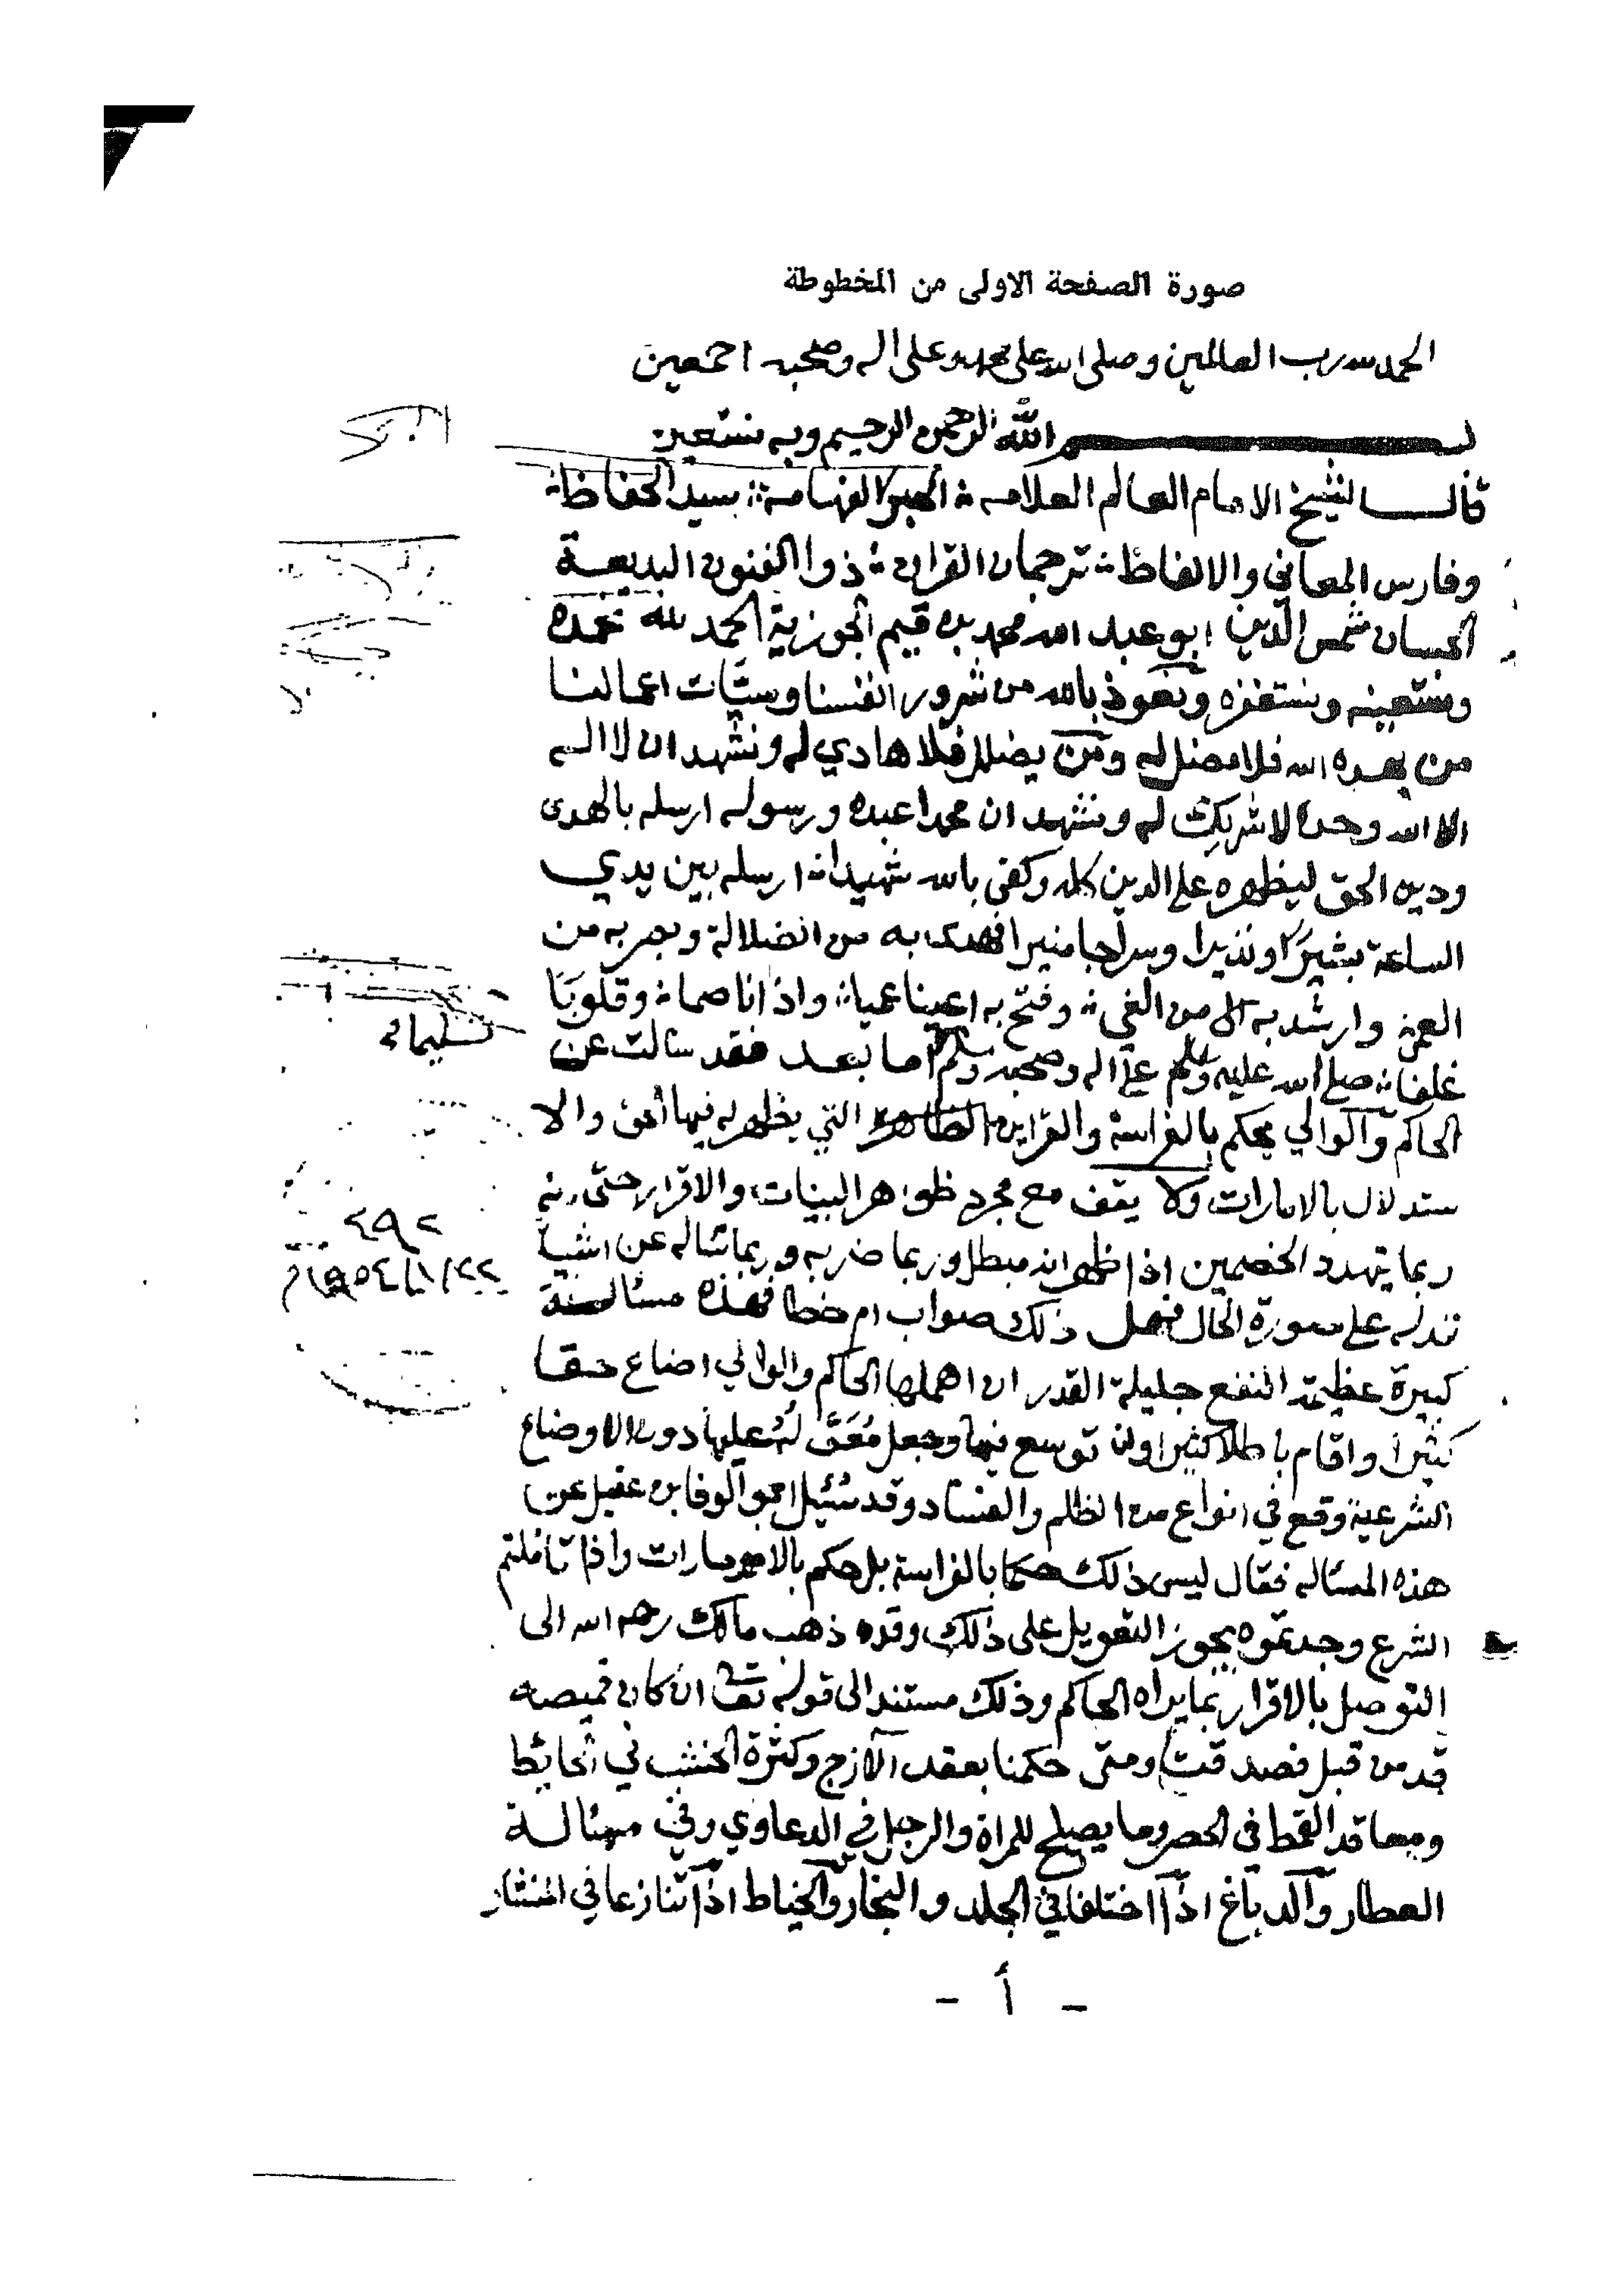 صورة الصفحة الاولى من المخطوطة
الحمد لله رب العالمين وصلى الله على محمد وعلى اله وصحبه اجمعين
بسم الله الرحمن الرحيم وبه نستعين
قال الشيخ الامام العالم العلامه الحبر الفهامة سيد الحفاظ
وفارس المعاني والالفاظ ترجمان القران ذو الفنون البديعة
الحسان شمس الدين ابو عبد الله محمد بن قيم الجوزية الحمد لله نحمده
ونستعينه ونستغفره ونعوذ بالله من شرور انفسنا وسيّات اعمالنا
من يهده الله فلا مضل له ومن يضلل فلا هادي له ونشهد ان لا اله
الا الله وحده لا شريك له ونشهد ان محمدا عبده ورسوله ارسله بالهدى
ودين الحق ليظهره على الدين كله وكفى بالله شهيدا ارسله بين يدي
الساعة بشيرا ونذيرا وسراجا منيرا فهدى به من الضلالة وبصر به من
العمى وارشد به من الغي وفتح به اعينا عميا واذانا صما وقلوبًا
غلفا صلى الله عليه وسلم على اله وصحبه وسلم اما بعد فقد سالت عن
الحاكم والوالي يحكم بالفراسة والقراين الظاهرة التي يظهر له فيها الحق والا
ستدلال بالامارات ولا يقف مع مجرد ظواهر البينات والاقرار حتى انه
ربما يتهدد الخصمين اذا ظهر انه مبطل وربما ضربه وربما سُاله عن اشيا
تدله على صورة الحال فهل ذلك صواب ام خطا فهذه مسُالة
كبيرة عظيمة النفع جليلة القدر ان اهملها الحاكم والوالي اضاع حقا
كثيرا واقام باطلا كثيرا وان توسع فيها وجعل مُعَوَّلهُ عليها دون الاوضاع
الشرعية وقع في انواع من الظلم والفساد وقد سُئيل ابو الوفا بن عقيل عن
هذه المسُاله فقال ليس ذلك حكما بالفراسة بل حكم بالامارات واذا تاملتم
الشرع وجدتموه يجوز التعويل على ذلك وقد ذهب مالك رحمه الله الى
التوصل بالاقرار بما يراه الحاكم وذلك مستند الى قوله تعا ان كان قميصه
قد من قبل فصدقت ومتى حكمنا بعقد الازج وكثرة الخشب في الحائط
ومعاقد القمط في الحصر وما يصلح للمراة والرجل في الدعاوي وفي مسُالة
العطار والدباغ اذا اختلفا في الجلد والنجار والخياط اذا تنازعا في المنشار
- أ -